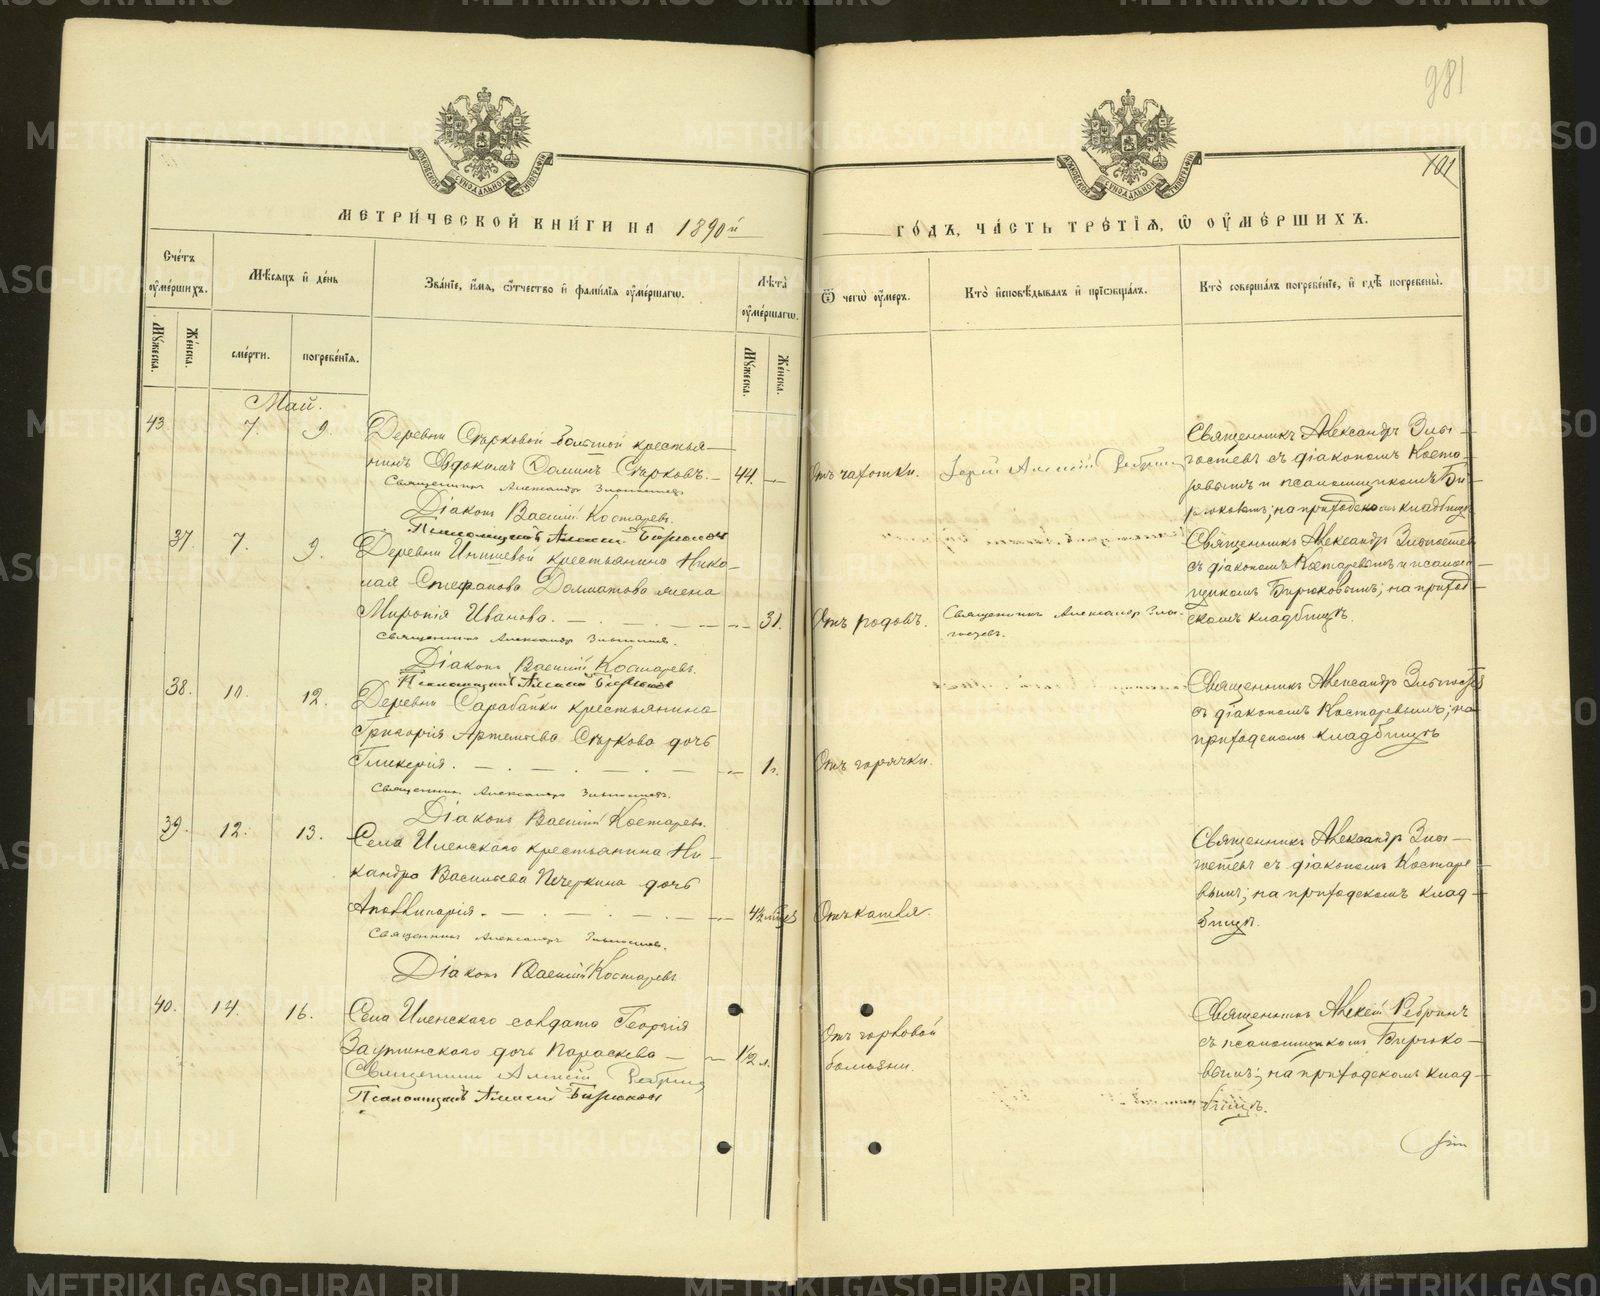 981
101
МЕТРИЧЕСКОЙ КНИГИ НА 1890й
ГОДЪ, ЧАСТЬ ТРЕТІЯ, Ѿ ОУМЕРШИХЪ.
Счетъ оумершихъ.
Мѣсяцъ и день
Званіе, имя, отчество и фамилія оумершагѡ.
Лѣта оумершагѡ.
Ѿ чегѡ оумеръ.
Кто исповѣдывалъ и пріобщалъ.
Кто совершалъ погребеніе, и гдѣ погребены.
Мужеска.
Женска.
смерти.
погребенія.
Мужеска.
Женска.
Май.
43. 7. 9.
Деревни Сѣрковой большой крестья-
нинъ Евдокимъ Доминъ Сѣрковъ. 44.
Священникъ Александръ
Діаконъ Василій Костаревъ.
Псаломщикъ Алексій Бирюковъ
Отъ чахотки.
Іерей Алексій Ребринъ
Священникъ Александръ Злы-
гостевъ съ діакономъ Коста-
ревымъ и псаломщикомъ Би-
рюковымъ; на приходскомъ кладбищѣ
37. 7. 9.
Деревни крестьянина Нико-
лая Стефанова Долматова жена
Миропія Иванова. 31.
Священникъ Александръ
Діаконъ Василій Костаревъ.
Псаломщикъ Алексій Бирюковъ
Отъ родовъ.
Священникъ Александръ Злы-
гостевъ.
Священникъ Александръ Злыгостевъ
съ діакономъ Костаревымъ и псалом-
щикомъ Бирюковымъ; на приход-
скомъ кладбищѣ.
38. 10. 12.
Деревни Сарабаики крестьянина
Григорія Артемьева Сѣркова дочь
Гликерія. 1 г.
Священникъ Александръ
Діаконъ Василій Костаревъ.
Отъ горячки.
Священникъ Александръ Злыгостевъ
съ діакономъ Костаревымъ; на
приходскомъ кладбищѣ
39. 12. 13.
Села Иленскаго крестьянина Ни-
кандра Васильева Печеркина дочь
Аполлинарія. 4½ мѣс.
Священникъ Александръ
Діаконъ Василій Костаревъ
Отъ кашля.
Священникъ Александръ Злы-
гостевъ съ діакономъ Костаре-
вымъ; на приходскомъ клад-
бищѣ.
40. 14. 16.
Села Иленскаго солдата Георгія
дочь Параскева 1½ л.
Священникъ Алексій Ребринъ
Псаломщикъ Алексій Бирюковъ
Отъ горловой
болѣзни.
Священникъ Алексій Ребринъ
съ псаломщикомъ Бирюко-
вымъ; на приходскомъ клад-
бищѣ.
METRIKI.GASO-URAL.RU